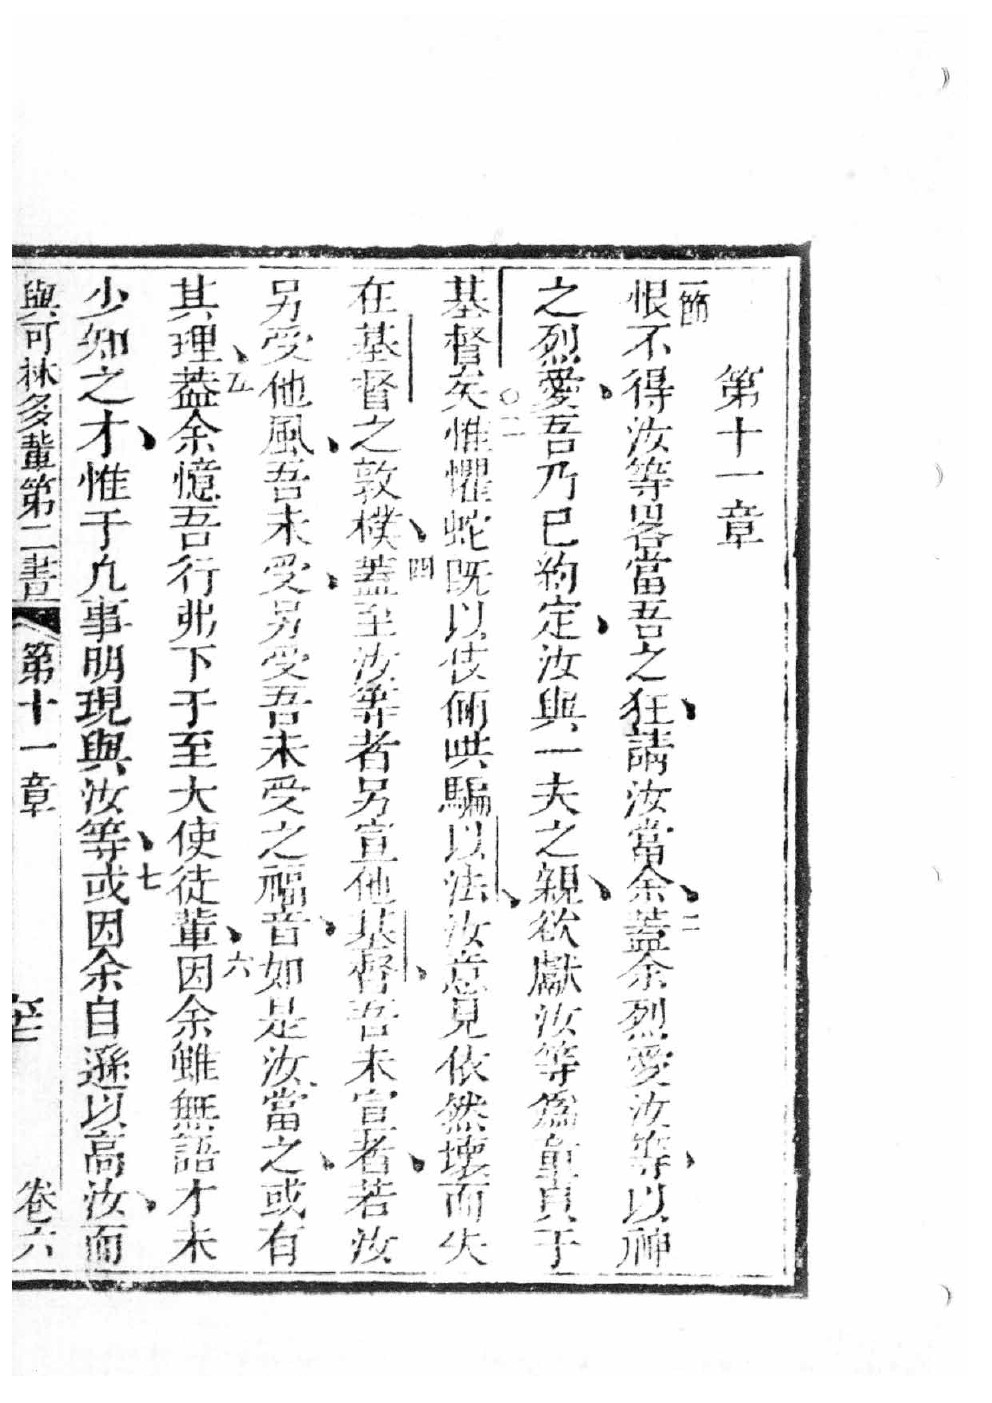 第十一章
一節恨不得汝等畧當吾之狂請汝當余二蓋余烈愛汝等以神
之烈愛吾乃已約定汝與一夫之親欲獻汝等為童貞于
基督矣○三惟懼蛇既以伎倆哄騙以法汝意見依然壞而失
在基督之敦樸四蓋至汝等者另宣他基督吾未宣者若汝
另受他風吾未受另受吾未受之福音如是汝當之或有
其理五葢余憶吾行弗下于至大使徒輩六因余雖無語才未
少知之才惟于凡事明現與汝等七或因余自遜以高汝而
與可林多輩第二書 第十一章 卷六